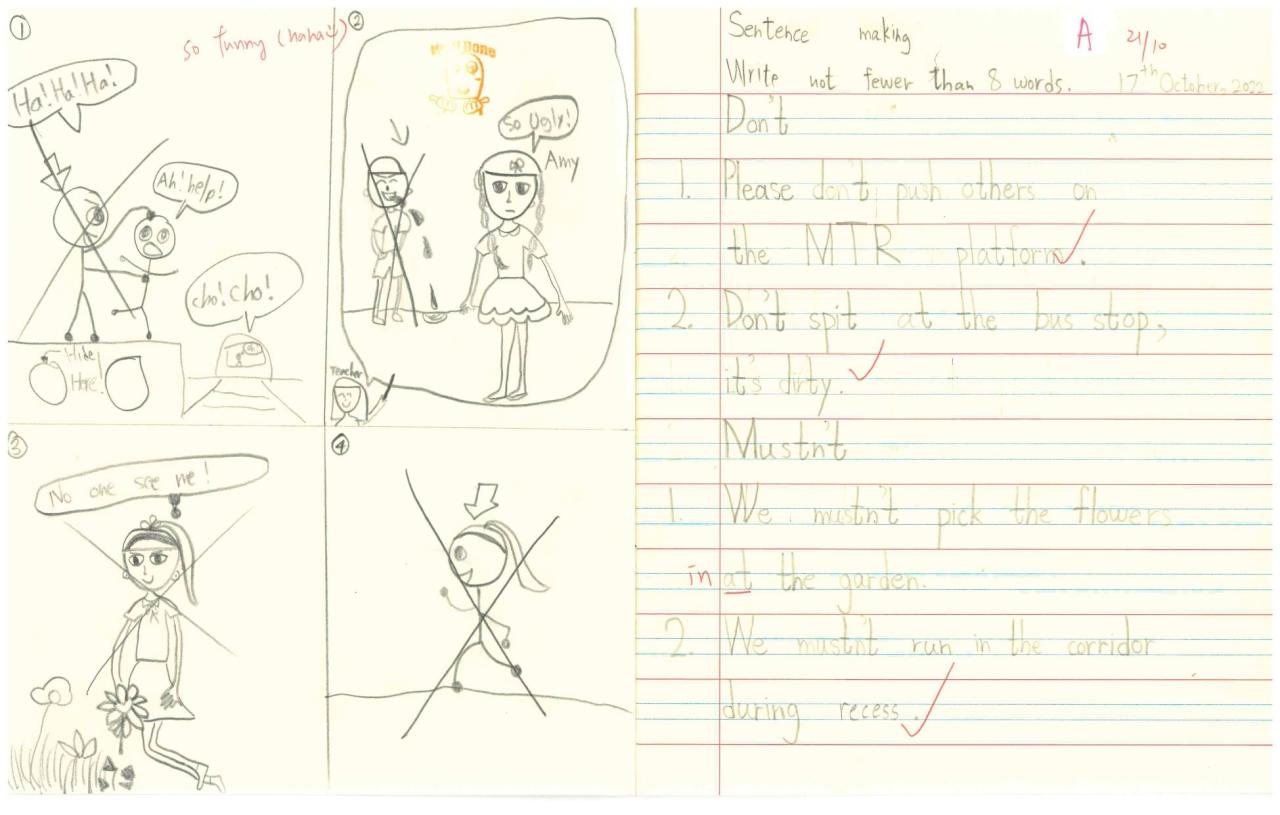 ①
so funny (haha
Ha! Ha! Ha!
Ah! help!
cho! cho!
Hide
Here!
②
Well Done
So Ugly!
Amy
Teacher
③
No one see me!
④
Sentence making
A
21/10
Write not fewer than 8 words.
17th October, 2022
Don't
1. Please don't push others on
the MTR platform.
2. Don't spit at the bus stop,
it's dirty.
Mustn't
1. We mustn't pick the flowers
in at the garden.
2. We mustn't run in the corridor
during recess.